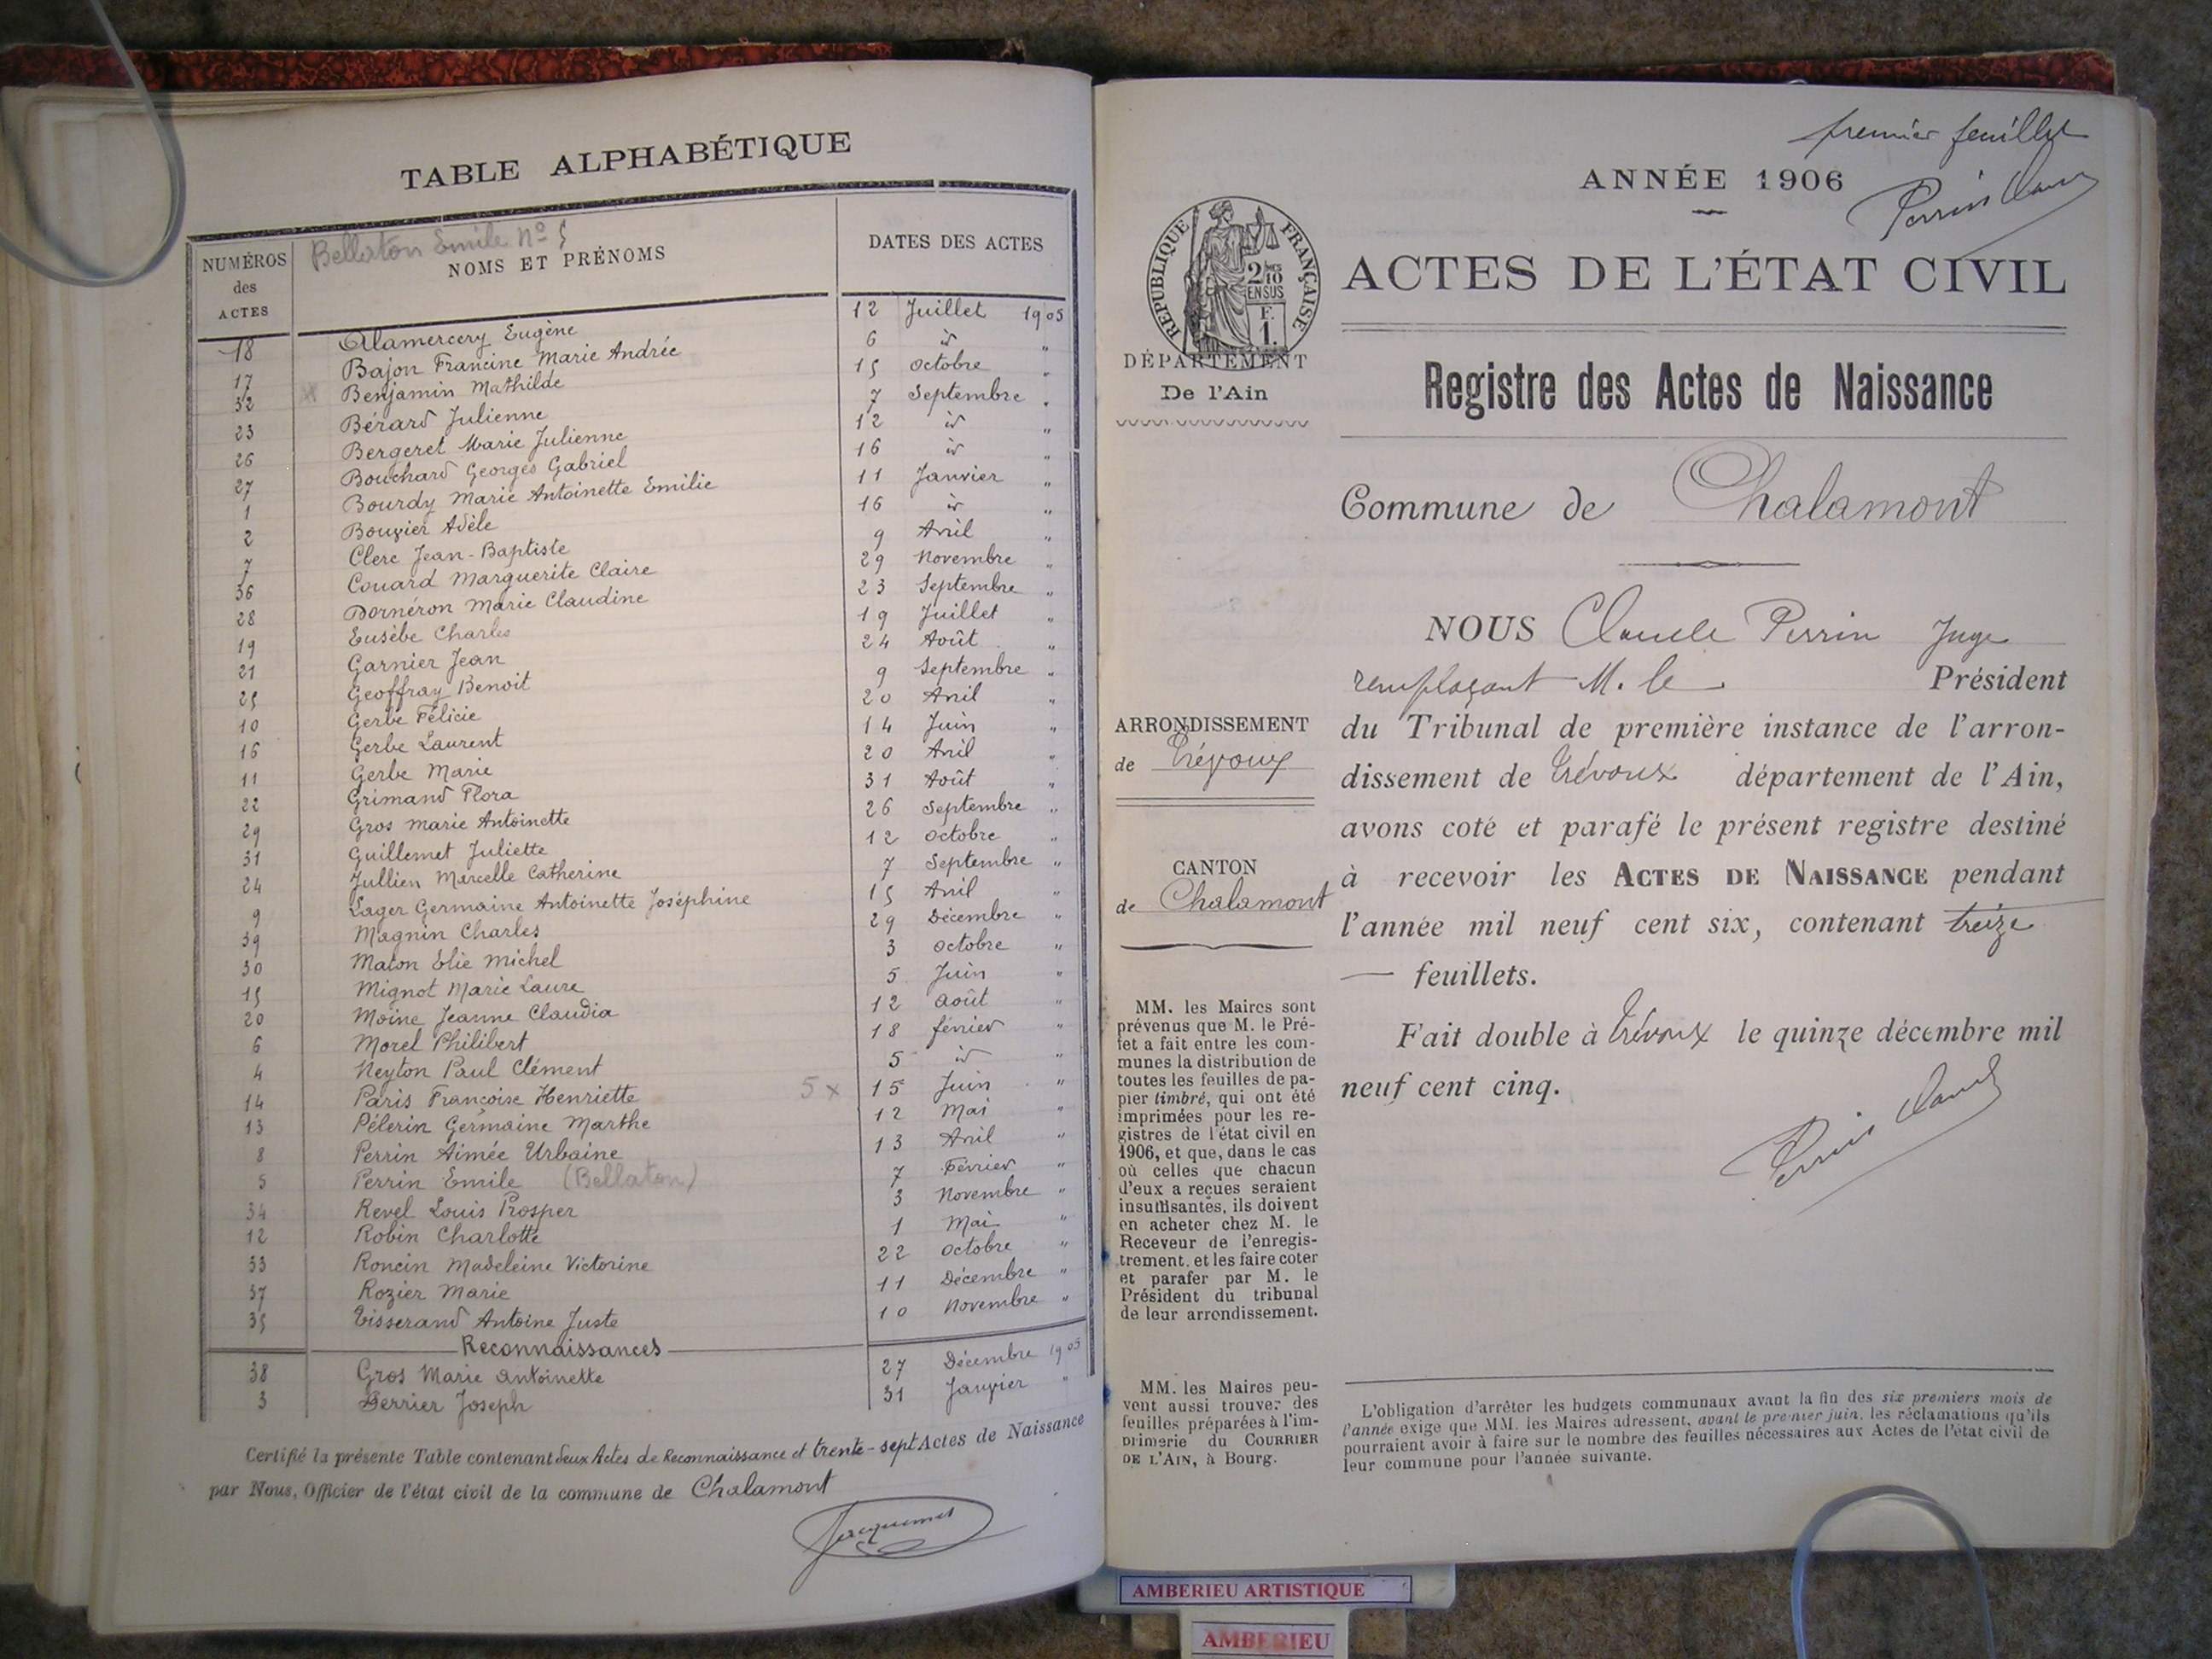 TABLE ALPHABÉTIQUE
NUMÉROS des ACTES
Bellaton Emile Nº 5
NOMS ET PRÉNOMS
DATES DES ACTES
18 Alamercery Eugène 12 Juillet 1905
17 Bajon Francine Marie Andrée 6 id "
32 Benjamin Mathilde 15 Octobre "
23 Bérard Julienne 7 Septembre "
26 Bergeret Marie Julienne 12 id "
27 Bouchard Georges Gabriel 16 id "
1 Bourdy Marie Antoinette Emilie 11 Janvier "
2 Bouvier Adèle 16 id "
7 Clerc Jean-Baptiste 9 Avril "
36 Couard Marguerite Claire 29 Novembre "
28 Dornéron Marie Claudine 23 Septembre "
19 Eusèbe Charles 19 Juillet "
21 Garnier Jean 24 Août "
25 Geoffray Benoit 9 Septembre "
10 Gerbe Félicie 20 Avril "
16 Gerbe Laurent 14 Juin "
11 Gerbe Marie 20 Avril "
22 Grimand Flora 31 Août "
29 Gros Marie Antoinette 26 Septembre "
31 Guillemet Juliette 12 Octobre "
24 Jullien Marcelle Catherine 7 Septembre "
9 Lager Germaine Antoinette Joséphine 15 Avril "
39 Magnin Charles 29 Décembre "
30 Maton Elie Michel 3 Octobre "
15 Mignot Marie Laure 5 Juin "
20 Moine Jeanne Claudia 12 Août "
6 Morel Philibert 18 février "
4 Neyton Paul Clément 5 id "
14 Paris Françoise Henriette 5 x 15 Juin "
13 Pélerin Germaine Marthe 12 Mai "
8 Perrin Aimée Urbaine 13 Avril "
5 Perrin Emile (Bellaton) 7 Février "
34 Revel Louis Prosper 3 Novembre "
12 Robin Charlotte 1 Mai "
33 Roncin Madeleine Victorine 22 Octobre "
37 Rozier Marie 11 Décembre "
35 Tisserand Antoine Juste 10 Novembre "
Reconnaissances
38 Gros Marie Antoinette 27 Décembre 1905
3 Perrier Joseph 31 Janvier "
Certifié la présente Table contenant deux Actes de Reconnaissance et trente-sept Actes de Naissance
par Nous, Officier de l'état civil de la commune de Chalamont
Jacquemet
premier feuillet
ANNÉE 1906
Perrin Claude
RÉPUBLIQUE FRANÇAISE
2/10 EN SUS
F. 1.
ACTES DE L'ÉTAT CIVIL
DÉPARTEMENT
De l'Ain
Registre des Actes de Naissance
Commune de Chalamont
NOUS Claude Perrin Juge
remplaçant M. le Président
du Tribunal de première instance de l'arron-
dissement de Trévoux département de l'Ain,
avons coté et parafé le présent registre destiné
à recevoir les ACTES DE NAISSANCE pendant
l'année mil neuf cent six, contenant treize
— feuillets.
Fait double à Trévoux le quinze décembre mil
neuf cent cinq.
Perrin Claude
ARRONDISSEMENT
de Trévoux
CANTON
de Chalamont
MM. les Maires sont
prévenus que M. le Pré-
fet a fait entre les com-
munes la distribution de
toutes les feuilles de pa-
pier timbré, qui ont été
imprimées pour les re-
gistres de l'état civil en
1906, et que, dans le cas
où celles que chacun
d'eux a reçues seraient
insuffisantes, ils doivent
en acheter chez M. le
Receveur de l'enregis-
trement, et les faire coter
et parafer par M. le
Président du tribunal
de leur arrondissement.
MM. les Maires peu-
vent aussi trouver des
feuilles préparées à l'im-
primerie du COURRIER
DE L'AIN, à Bourg.
L'obligation d'arrêter les budgets communaux avant la fin des six premiers mois de
l'année exige que MM. les Maires adressent, avant le premier juin, les réclamations qu'ils
pourraient avoir à faire sur le nombre des feuilles nécessaires aux Actes de l'état civil de
leur commune pour l'année suivante.
AMBERIEU ARTISTIQUE
AMBERIEU